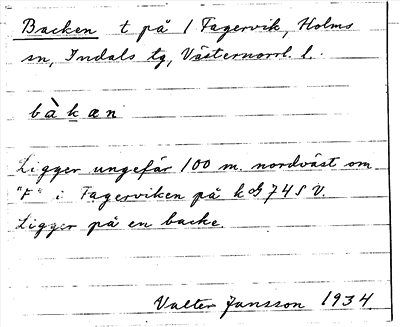 Backen t på 1 Fagervik, Holms
sn, Indals tg, Västernorrl. l.
bàkæn
Ligger ungefär 100 m. nordväst om
"F" i Fagerviken på k 74 S V.
Ligger på en backe.
Valter Jansson 1934